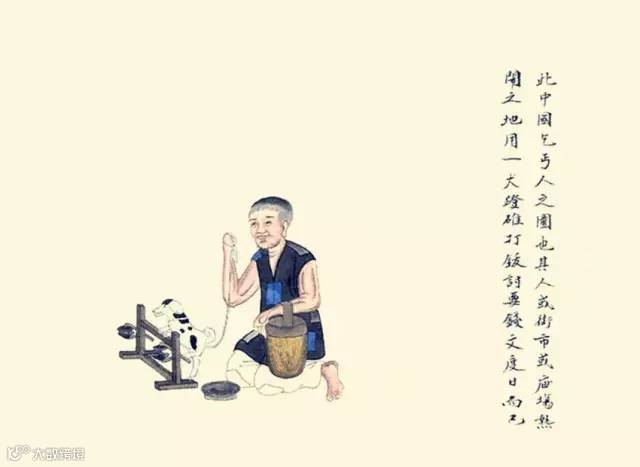 此中國乞丐人之圖也其人或街市或庙塲熱
鬧之地用一犬蹬碓打鈸討要錢文度日而已
大数跨境